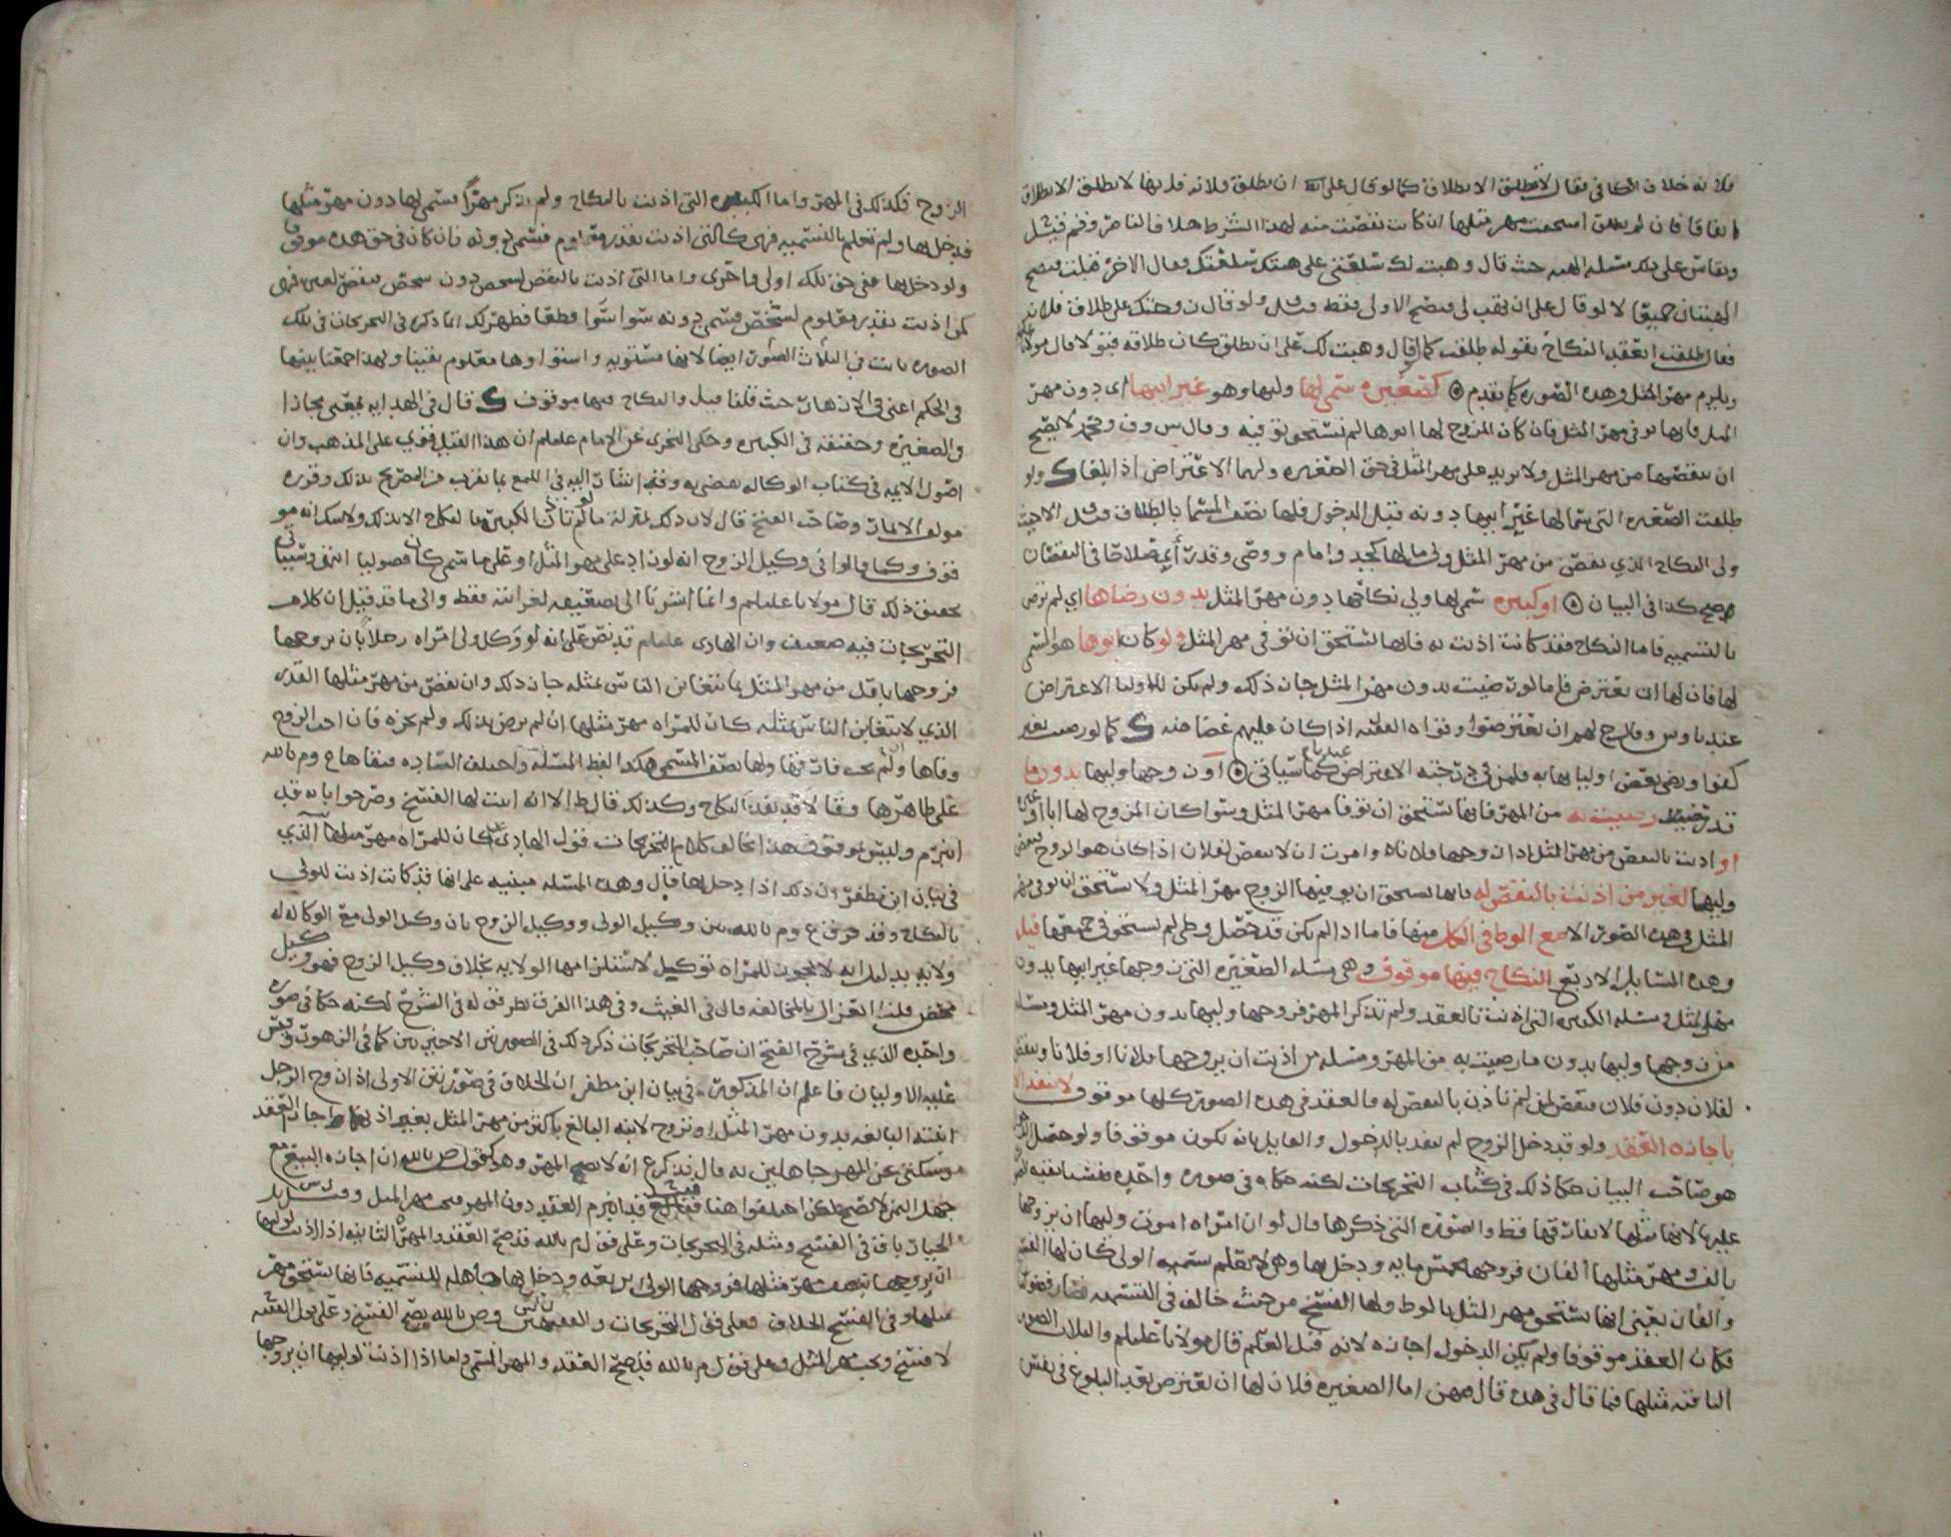 فلانه خلاف الكافي فقال لا تطلق الا بطلاق كما لو قال على ان يطلق فلانه فلربما لا يطلق الا بطلاق
اتفاقا فان لم يطلق استحقت مهر مثلها ان كانت نقصت منه لهذا الشرط خلاف الناصر
ويقاس على ذلك مسئله الهبه حيث قال وهبت لك سلعتى على هبتك سلعتك فقال الاخر قبلت فتصح
الهبتان جميعا لا لو قال على ان تهب لى فتصح الاولى فقط ولو قال زوجتك على طلاق فلانه
فقال طلقت انعقد النكاح بقوله طلقت كما لو قال وهبت لك على ان يطلق كان طلاقه قبولا قال مولانا
ويلزم مهر المثل وهذه الصوره كما تقدم كصغيره سمى لها وليها وهو غير ابيها اى دون مهر
المثل فانها توفى مهر المثل فان كان المزوج لها ابوها لم تستحق توفيه وقال س وف ومحمد لا يصح
ان ينقصها من مهر المثل ولا يزيد على مهر المثل فى حق الصغيره ولهما الاعتراض اذا بلغا ولو
طلقت الصغيره التى سمى لها غير ابيها دونه قبل الدخول فلها نصف المسما بالطلاق
ولى النكاح الذي نقص من مهر المثل ولى مالها كجد وامام ووصى وقد رأى صلاحا فى النقصان
صح هكذا فى البيان او كبيره سمى لها ولي نكاحها دون مهر المثل بدون رضاها اي لم ترض
بالتسميه فاما النكاح فقد كانت اذنت به فانها تستحق ان توفى مهر المثل ولو كان ابوها هو المسمى
لها فان لها ان تعترض فاما لو رضيت بدون مهر المثل جاز ذلك ولم يكن للاوليا الاعتراض
عندنا وس وقال ح لهم ان يعترضوا ونواه الفقيه اذا كان عليهم غضاضه كما لو رضيت بغير
كفوا ورضى بعض اوليائها به فلمن فى درجته الاعتراض عندنا كما سياتى او زوجها وليها بدون ما
قد رضيت به من المهر فانها تستحق ان توفا مهر المثل وسوا كان المزوج لها ابا او غيره
او اذنت بالنقص من مهر المثل اذا زوجها فلانا وامرت ان لا ينقص لفلان اذا كان هو الزوج فنقص
وليها لغير من اذنت بالنقص له فانها تستحق ان يوفيها الزوج مهر المثل ولا تستحق ان توفى مهر
المثل فى هذه الصور الا مع الوطى فى الكل منها فاما اذا لم يكن قد حصل وطى لم تستحق فى جميعها قيل
وهذه المسايل الاربع النكاح فيها موقوف وهى مسله الصغيره التى زوجها غير ابيها بدون
مهر المثل ومسله الكبيره التى اذنت بالعقد ولم تذكر المهر فزوجها وليها بدون مهر المثل ومسله
من زوجها وليها بدون ما رضيت به من المهر ومسله من اذنت ان يزوجها فلانا او فلانا وينقص
لفلان دون فلان فنقص لمن لم تأذن بالنقص له فالعقد فى هذه الصور كلها موقوف لا ينفذ الا
باجازه العقد ولو قد دخل الزوج لم ينفذ بالدخول والقايل بانه يكون موقوفا ولو حصل الدخول
هو صاحب البيان حكا ذلك فى كتاب التخريجات لكنه حكاه فى صوره واحده
عليها لانها مثلها لا يفارقها فقط والصوره التى ذكرها قال لو ان امراه امرت وليها ان يزوجها
بالف ومهر مثلها الفان فزوجها بخمس مايه ودخل بها وهى لا تعلم تسميه الولى كان لها الفسخ
والفان يعنى انها تستحق مهر المثل بالوطى ولها الفسخ من حيث خالف فى التسميه فصار
فكان العقد موقوفا ولم يكن الدخول اجازه لانه قبل العلم قال مولانا عليلم والثلاث الصور
الباقيه مثلها فما قال فى هذه قال فهن اما الصغيره فلان لها ان تعترض بعد البلوغ فى نفس
الزوج فكذلك فى المهر واما الكبيره التى اذنت بالنكاح ولم تذكر مهرا فسمى لها دون مهر مثلها
فدخل بها ولم تعلم بالتسميه فهى كالتى اذنت بقدر معلوم فسمى دونه فان كان فى حق هذه موقوفا
ولو دخل بها ففى حق تلك اولى واحرى واما التى اذنت بالنقص لشخص دون شخص فنقص لغيره فهى
كمن اذنت بقدر معلوم لشخص فسمى دونه سوا سوا قطعا فظهر لك ان ما ذكر فى التخريجات فى تلك
الصوره ثابت في الثلاث الصور ايضا لانها مستويه واستواوها معلوم يقينا ولهذا جمعنا بينها
فى الحكم اعنى فى الازهار حيث قلنا قيل والنكاح فيها موقوف قال فى الهدايه يعنى مجازا
فى الصغيره وحقيقه فى الكبيره وحكى النجرى عن الامام عليلم ان هذا القيل قوي على المذهب وان
اصول الائمه فى كتاب الوكاله تقضى به وقد اشار اليه فى اللمع بما يقرب من التصريح بذلك وقرره
مولف الاثمار وصاحب الفتح قال لان ذلك بمنزلة ما لو لم تاذن الكبيره بالنكاح الا بذلك ولا شك انه مو
قوف وكما قالوا فى وكيل الزوج انه لو زاد على مهر المثل او على ما سمى كان فضوليا انتهى وسياتى
تحقيق ذلك قال مولانا عليلم وانما اشرنا الى تضعيفه لغرابته فقط والى ما قد قيل ان كلام
التخريجات فيه ضعيف وان الهادى عليلم قد نص على انه لو وكل ولى امراه رجلا بان يزوجها
فزوجها باقل من مهر المثل بما يتغابن الناس بمثله جاز ذلك وان نقص من مهر مثلها القدر
الذي لا يتغابن الناس بمثله كان للمراه مهر مثلها ان لم يرض بذلك ولم يجزه فان احب الزوج
وفاها والم يحب فارقها ولها نصف المسمى هكذا لفظ المسئله واختلف الساده فبقاها ع وم بالله
على ظاهرها وقالا قد نفذ النكاح وكذلك قال ط الا انه اثبت لها الفسخ وصرحوا بانه قد
انبرم وليس بموقوف فهذا يخالف كلام التخريجات قول الهادى كان للمراه مهر مثلها الذي
فى بيان ابن مظفر ان ذلك اذا دخل بها قال وهذه المسئله مبنيه على انها قد كانت اذنت للولى
بالنكاح وقد فرق ع وم بالله بين وكيل الولى ووكيل الزوج بان وكيل الولى مع الوكاله له
ولايه بدليل انه لا يجوز للمراه توكيل لاستلزامها الولايه بخلاف وكيل الزوج فهو وكيل
محض قلنا العزل بالمخالفه قال فى الغيث وفى هذا الفرق نظر قال فى الشرح لكنه حكا فى صوره
واحده الذي فى شرح الفتح ان صاحب التخريجات ذكر ذلك فى الصورتين الاخيرتين كما فى الزهور وقس
عليه الاوليان فاعلم ان المذكور فى بيان ابن مظفر ان الخلاف فى صورتين الاولى اذا زوج الرجل
ابنته البالغه بدون مهر المثل او تزوج لابنه البالغ باكثر من مهر المثل بغير اذنهما واجازا العقد
وسكتا عن المهر جاهلين به قال فذكر ع انه لا يصح المهر وهو كقول ص بالله ان اجازه البيع مع
جهل الثمن لا تصح لكن اختلفوا هنا فقال ع قد انبرم العقد دون المهر فيجب مهر المثل وقيل س بل
الخيار باق فى الفسخ ومثله فى التخريجات وعلى قول م بالله قد صح العقد والمهر الثانيه اذا اذنت لوليها
ان يزوجها بنصف مهر مثلها فزوجها الولى بربعه ودخل بها جاهله للتسميه فانها تستحق مهر
مثلها وفى الفسخ الخلاف فعلى قول التخريجات والفقيهين وص بالله يصح الفسخ وعلى قول الفقيه
لا فسخ ويجب مهر المثل وعلى قول م بالله قد صح العقد والمهر المسمى واما اذا اذنت لوليها ان يزوجها